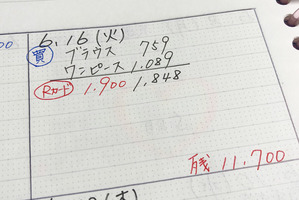 6.16 (火)
買 ブラウス 759
ワンピース 1.089
Rカード 1.900 1.848
残 11.700